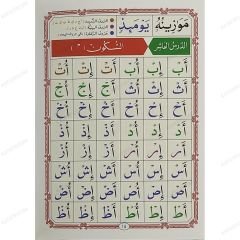 مَوَزِينُهُ يَوْمَئِذٍ
الدرس العاشر
السكون
أَبْ إِبْ أُبْ أَتْ إِتْ أُتْ
أَثْ إِثْ أُثْ أَجْ إِجْ أُجْ
أَدْ إِدْ أُدْ أَذْ إِذْ أُذْ
أَرْ إِرْ أُرْ أَزْ إِزْ أُزْ
أَسْ إِسْ أُسْ أَشْ إِشْ أُشْ
أَصْ إِصْ أُصْ أَضْ إِضْ أُضْ
أَطْ إِطْ أُطْ أَظْ إِظْ أُظْ